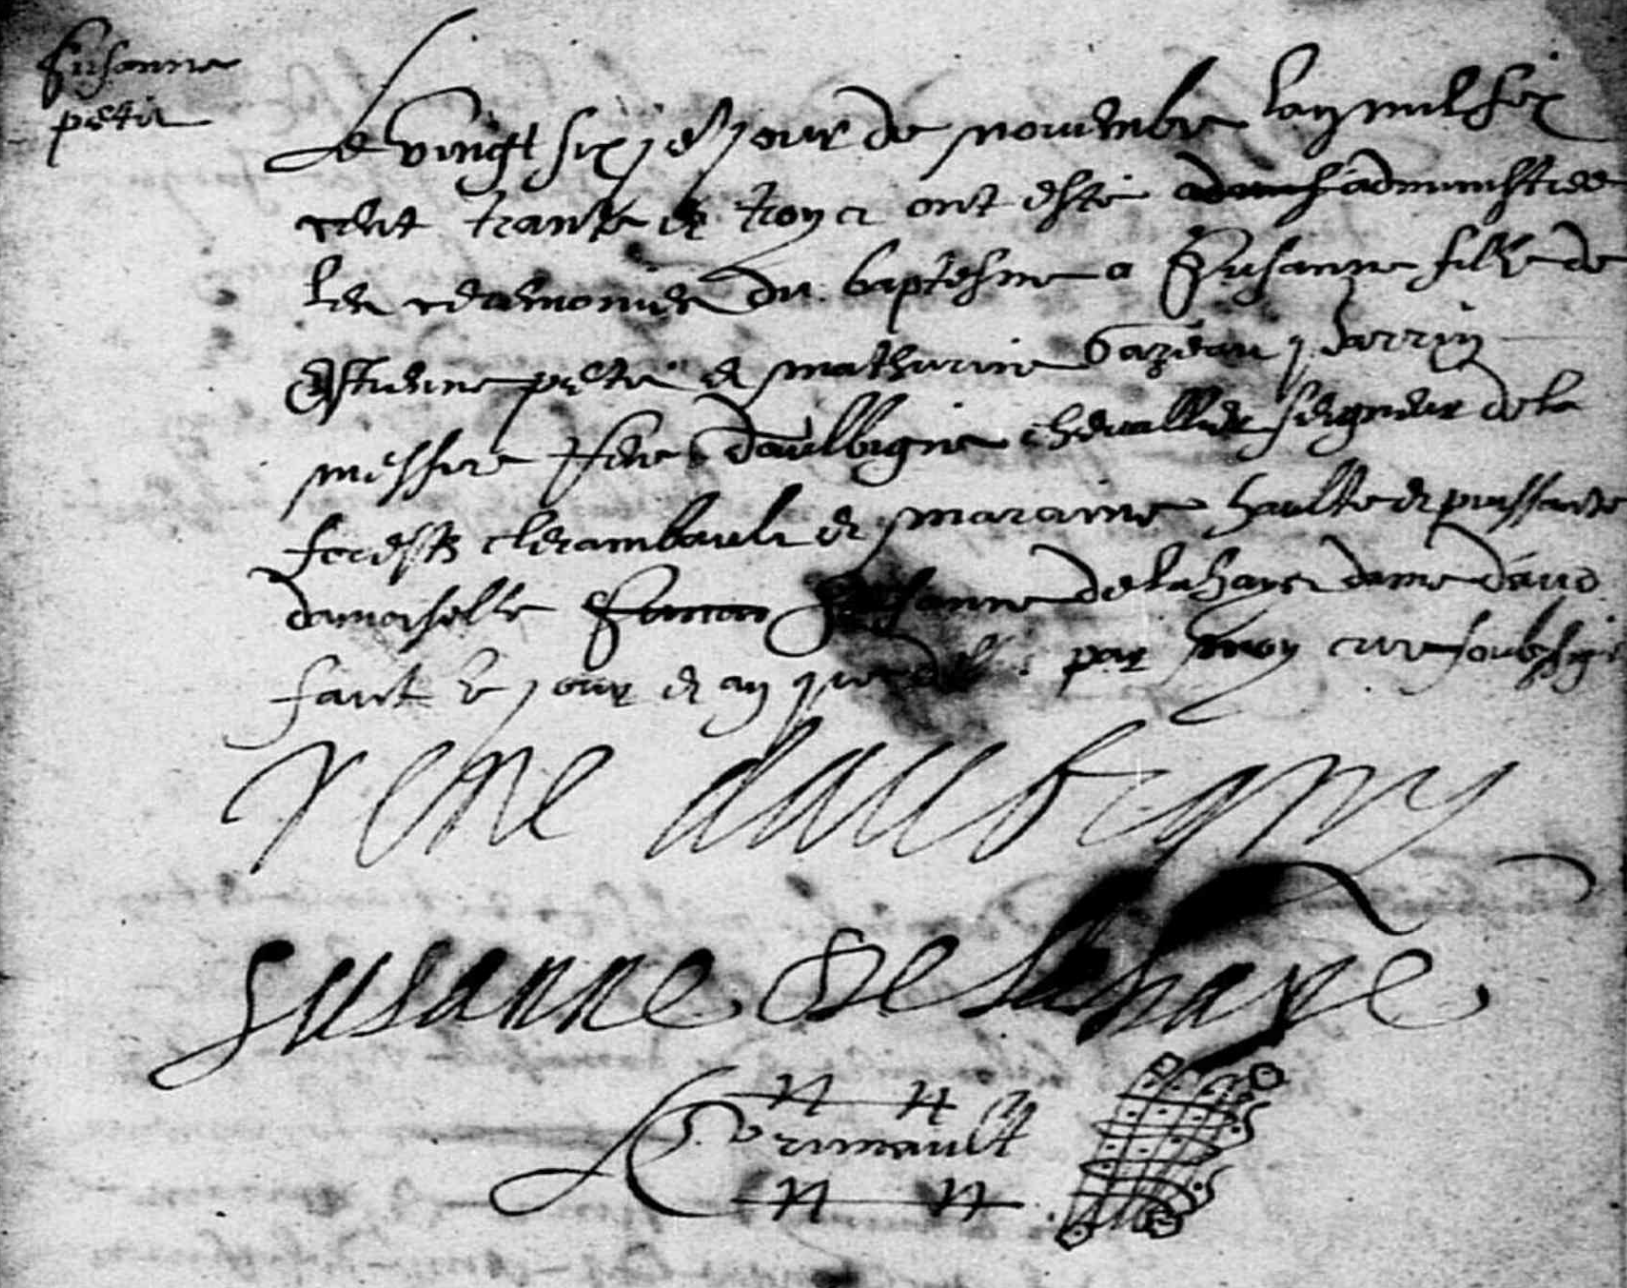 Susanne
petit
Le vingt sixiesjour de novembre lan mil six
cent trante et troys ont esté admis administree
les ceremonies du baptesme a Susanne fille de
Estienne petit et mathurine Gazeau parrin
messire rene daulbigne chevallier seigneur de la
forests clerambault et maraine haulte et puissante
damoiselle Susanne de la haye dame daud
faict le jour et an que par moy cure soubsigné
rene daubigny
susanne de la haye
Cormault